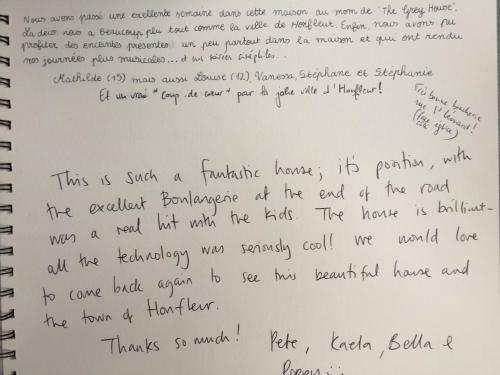 Nous avons passé une excellente semaine dans cette maison au nom de "The Grey House".
La déco nous a beaucoup plu tout comme la ville de Honfleur. Enfin, nous avons pu
profiter des enceintes présentes un peu partout dans la maison et qui ont rendu
nos journées plus musicales... et nos soirées
Mathilde (15) mais aussi Louise (12), Vanessa, Stéphane et Stéphanie
Et un vrai "coup de cœur" pour la jolie ville d'Honfleur!
Très bonne boucherie
rue St Léonard!
This is such a fantastic house; it's position, with
the excellent Bonlangerie at the end of the road
was a real hit with the kids. The house is brilliant-
all the technology was seriously cool! We would love
to come back again to see this beautiful house and
the town of Honfleur.
Thanks so much! Pete, Kaela, Bella &
Poppy